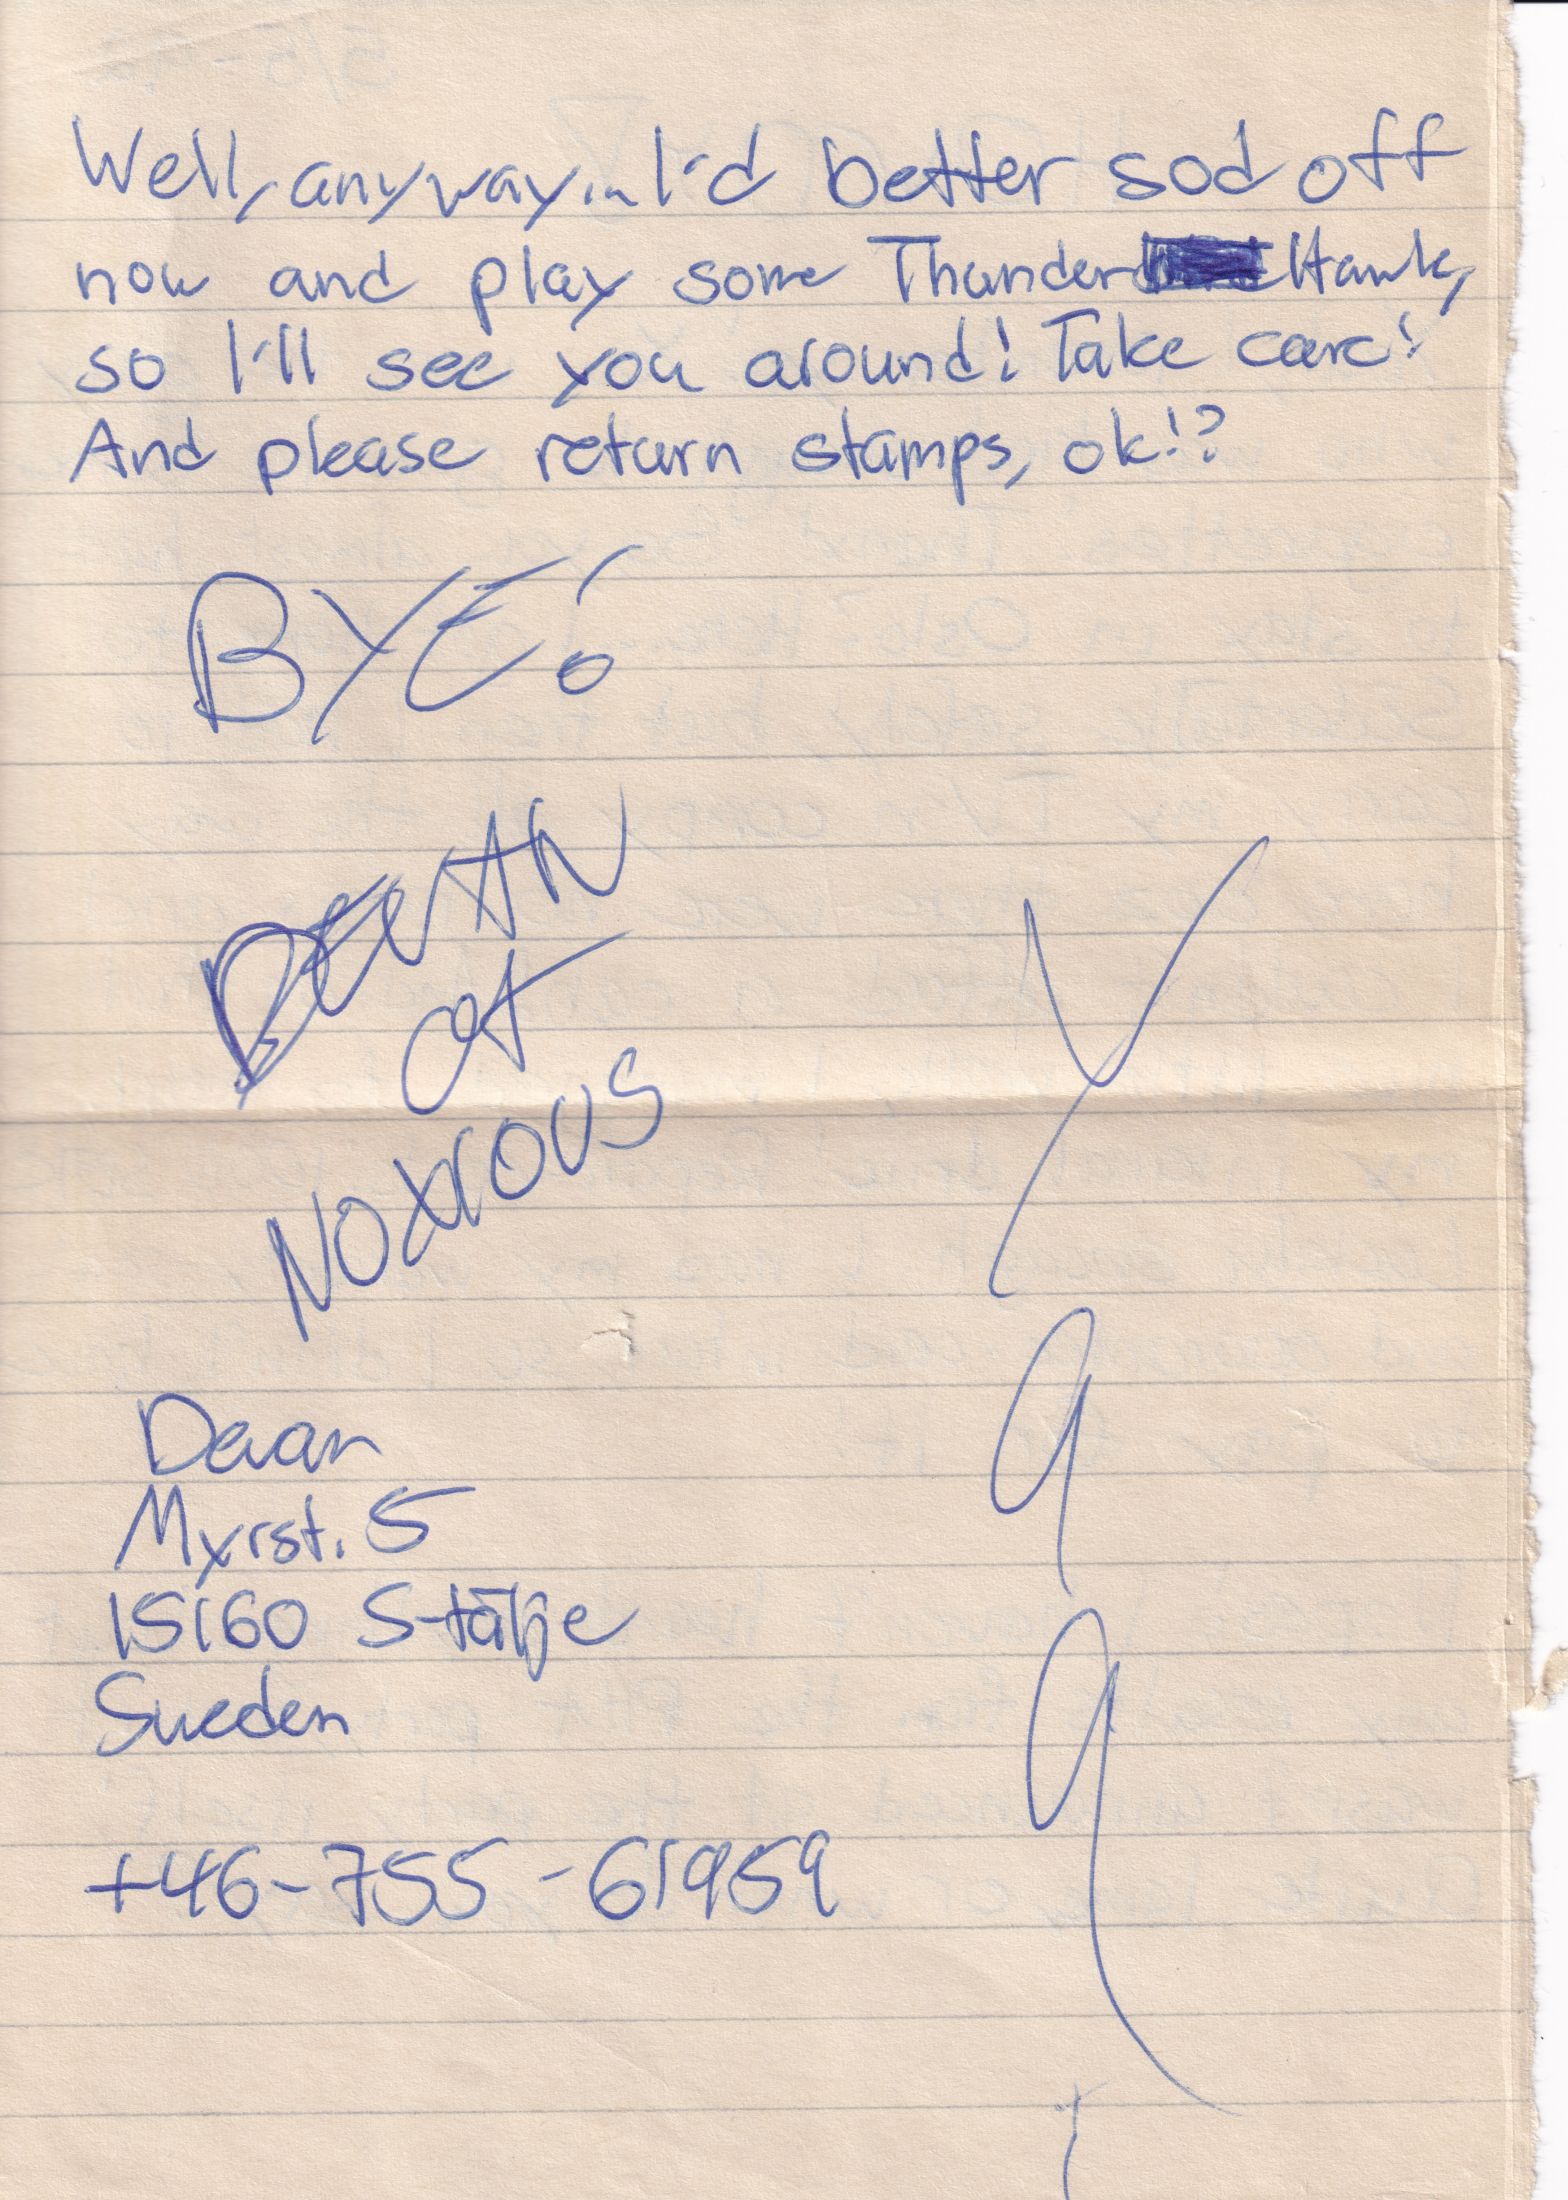 Well, anyway... I'd better sod off
now and play some Thunder Hawk,
so I'll see you around! Take care!
And please return stamps, ok!?
BYE!
OF
NOXIOUS
Y
a
a
Myrst. 5
15160 S-tälje
Sweden
+46-755-61959